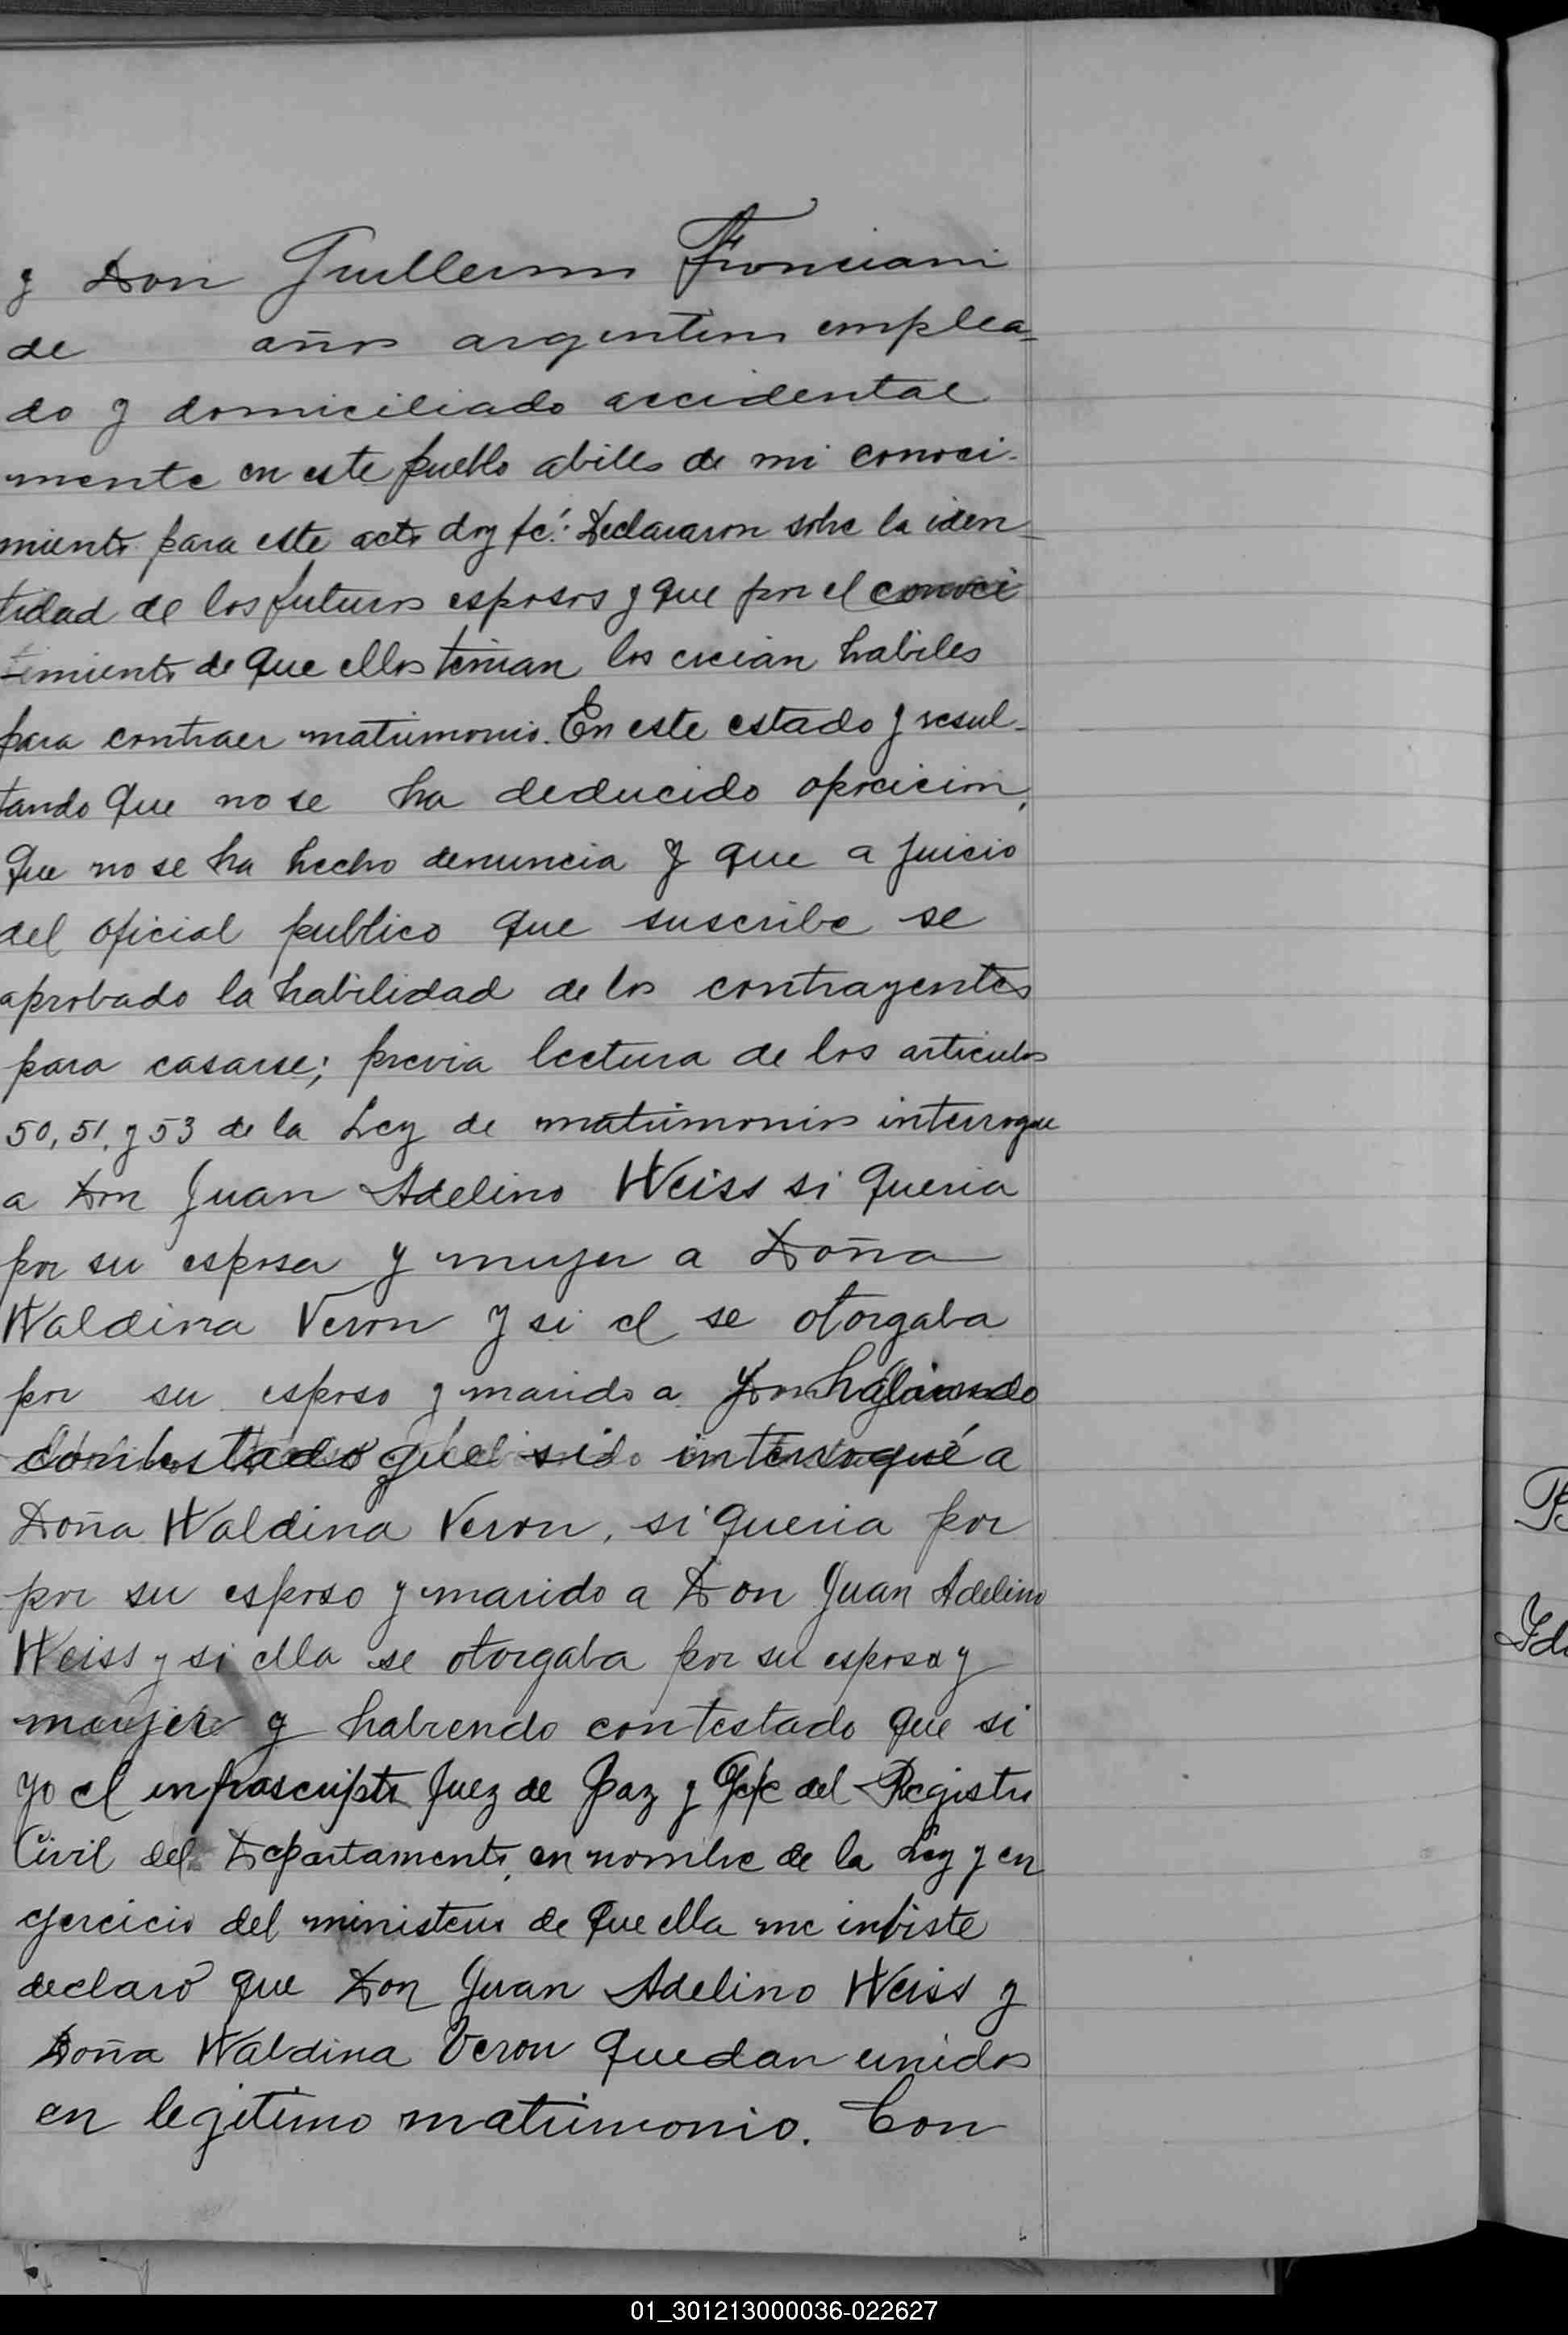 y Don Guillermo Fronciani
de años argentino emplea-
do y domiciliado accidental
mente en este pueblo abiles de mi conoci-
miento para este acto doy fé: Declararon sobre la iden-
tidad de los futuros esposos y que por el conoci
imiento de que ellos tenian los creian habiles
para contraer matrimonio. En este estado y resul-
tando que no se ha deducido oposicion,
que no se ha hecho denuncia y que a juicio
del oficial publico que suscribe se
aprobado la habilidad de los contrayentes
para casarse; previa lectura de los articulos
50, 51, y 53 de la Ley de matrimonio interrogue
a Don Juan Adelino Weiss si queria
por su esposa y mujer a Doña
Waldina Veron y si el se otorgaba
por su esposo y marido a habiendo
contestado que si interrogué a
Doña Waldina Veron, si queria por
por su esposo y marido a Don Juan Adelino
Weiss y si ella se otorgaba por su esposa y
mujer y habiendo contestado que si
yo el infrascripto Juez de Paz y Gefe del Registro
Civil del Departamento, en nombre de la Ley y en
ejercicio del ministerio de que ella me inviste
declaró que Don Juan Adelino Weiss y
Doña Waldina Veron quedan unidos
en legitimo matrimonio. Con
01_301213000036-022627